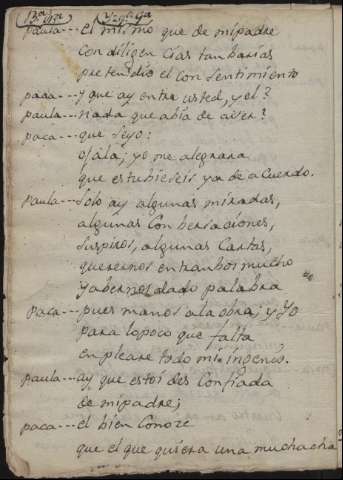 paula--- el mismo que de mi padre
con diligen cias tan barias
pretendio el con sentimiento
paca--- y que ay entre usted, y el?
paula--- nada que abia de aver?
paca--- que se yo:
ojala; yo me alegrara
que estubieseis ya de a Cuerdo.
Paula--- solo ay algunas miradas,
algunas Con bersaciones,
suspiros, algunas Cartas,
querernos entranbos mucho
y abernos dado palabra
Paca--- pues manos a la obra; y Yo
para lo poco que falta
en pleare todo mi ingenio.
paula--- ay que estoi des Confiada
de mi padre;
paca--- el bien Conoze
que el que quiera una muchacha